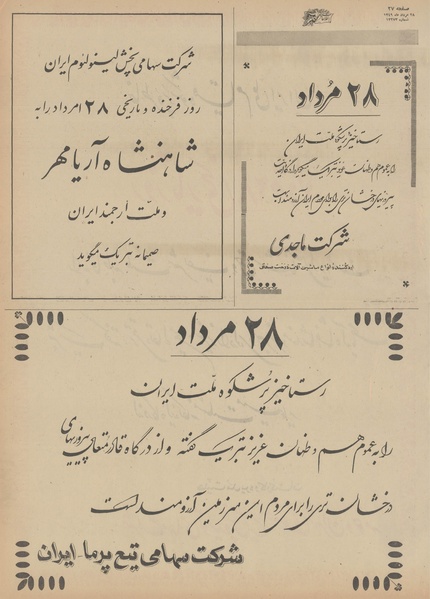 صفحه ۲۷
شرکت سهامی پخش لینولئوم ایران
روز فرخنده و تاریخی ۲۸ امرداد را به
شاهنشاه آریامهر
و ملت ارجمند ایران
صمیمانه تبریک میگوید
۲۸ مُرداد
رستاخیز پرشکوه ملت ایران
شرکت ماجدی
۲۸ مرداد
رستاخیز پُرشکوه ملّت ایران
را به عموم هم وطنان عزیز تبریک گفته و از درگاه قادر متعال پیروزیهای
درخشان تری را برای مردم این سرزمین آرزومند است
شرکت سهامی تیغ پرما - ایران